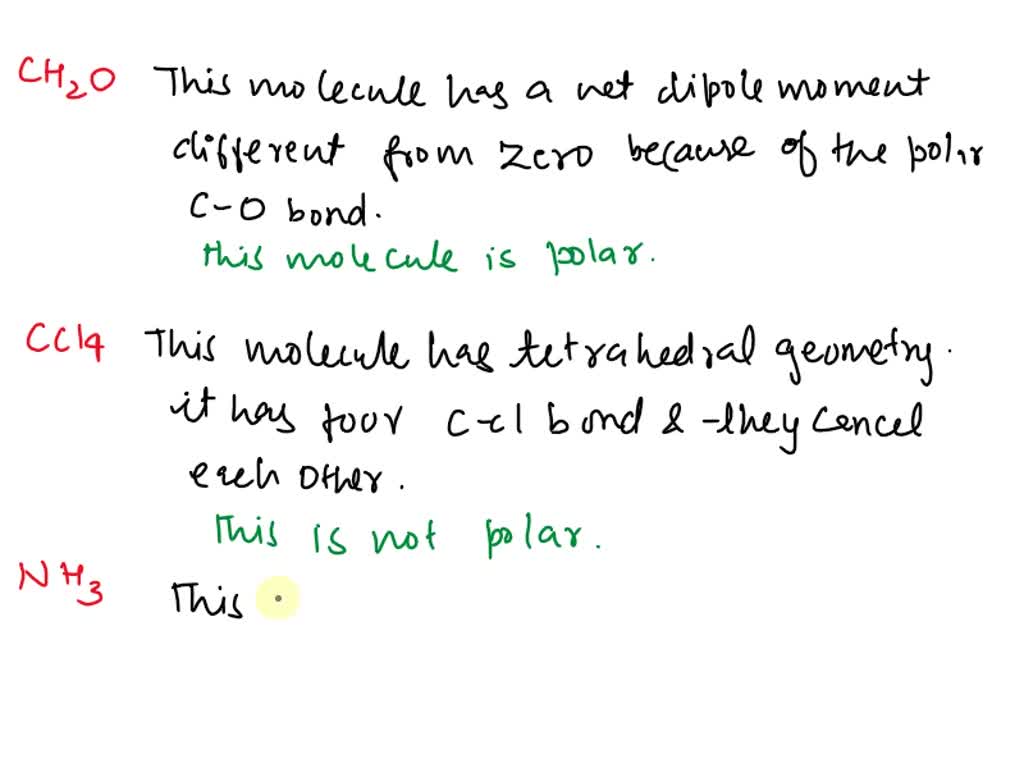 CH2O This molecule has a net dipole moment
different from zero because of the polar
C-O bond.
this molecule is polar.
CCl4 This molecule has tetrahedral geometry.
it has four C-Cl bond & they cencel
each other.
This is not polar.
NH3 This